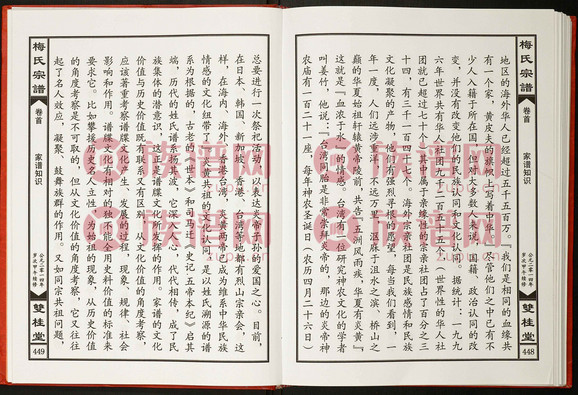 梅氏宗譜
卷首
家谱知识
公元二零一四年
岁次甲午精修
雙桂堂
448
地区的海外华人已经超过五千五百万。『我们是相同的血缘共
有一个家，黄皮肤的旗帜上写着中华』。尽管他们之中已有不
少人入籍于所在国，但对大多数人来说，国籍、政治认同的改
变，并没有改变他们的民族认同和文化认同。据统计：一九九
六年世界共有华人社团九千二百五十五个，（世界性的华人社
团就已超过七十个）其中属于亲缘性的宗亲社团占了百分之三
十四，有三千一百四十七个。海外宗亲社团是民族感情和民族
文化凝聚的产物，他们有强烈寻根的愿望，每当我们看到，一
年一度，人们远涉重洋，不远万里，汇麻于沮水之滨、桥山之
巅的华夏始祖轩辕黄帝陵前，共告『五洲风雨疾，华夏有炎黄』，
这就是『血浓于水』的情感。台湾有一位研究神农文化的学者
叫姜竹，他说：『台湾同胞是非常崇拜炎帝的，那边的炎帝神
农庙有一百二十一座，每年神农圣诞日（农历四月二十六日）
总要进行一次祭祀活动，以表达炎帝子孙的爱国之心。目前，
在日本、韩国、新加坡、香港、台湾等地都有烈山宗亲会，这
样，在海内、海外、香港台湾，炎黄两帝已成为维系中华民族
情感的文化纽带了。』炎黄共祖的文化认同，是以姓氏溯源的谱
系为根据的，古老的《世本》和司马迁《史记·五帝本纪》启其
端，历代的姓氏谱系扬其波，它深入人心，代代相传，成了民
族集体的潜意识，这正是谱牒文化所发挥的作用。家谱的文化
价值与历史价值既有联系又有区别。从文化价值的角度考察，
应该著重考察谱牒文化产生、发展的过程，现象、规律、社会
影响和作用。谱牒文化有相对的独，不能全用史料价值的标准来
要求它。比如攀援历史名人立姓，为始祖的现象，从历史价值
的角度考察是不可取的，但从文化价值的角度考察，它又往往
起了名人效应，凝聚、鼓舞族群的作用。又如同宗共祖问题，
梅氏宗譜
卷首
家谱知识
公元二零一四年
岁次甲午精修
雙桂堂
449